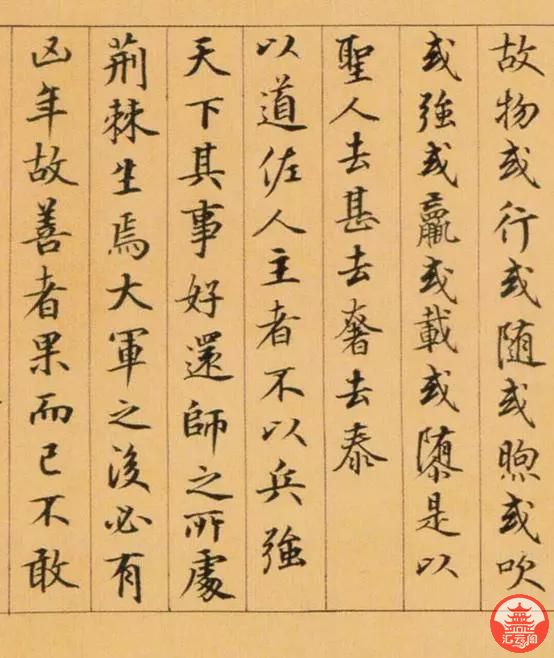 故物或行或随或煦或吹
或強或羸或載或隳是以
聖人去甚去奢去泰
以道佐人主者不以兵強
天下其事好還師之所處
荆棘生焉大軍之後必有
凶年故善者果而已不敢
汇云阁